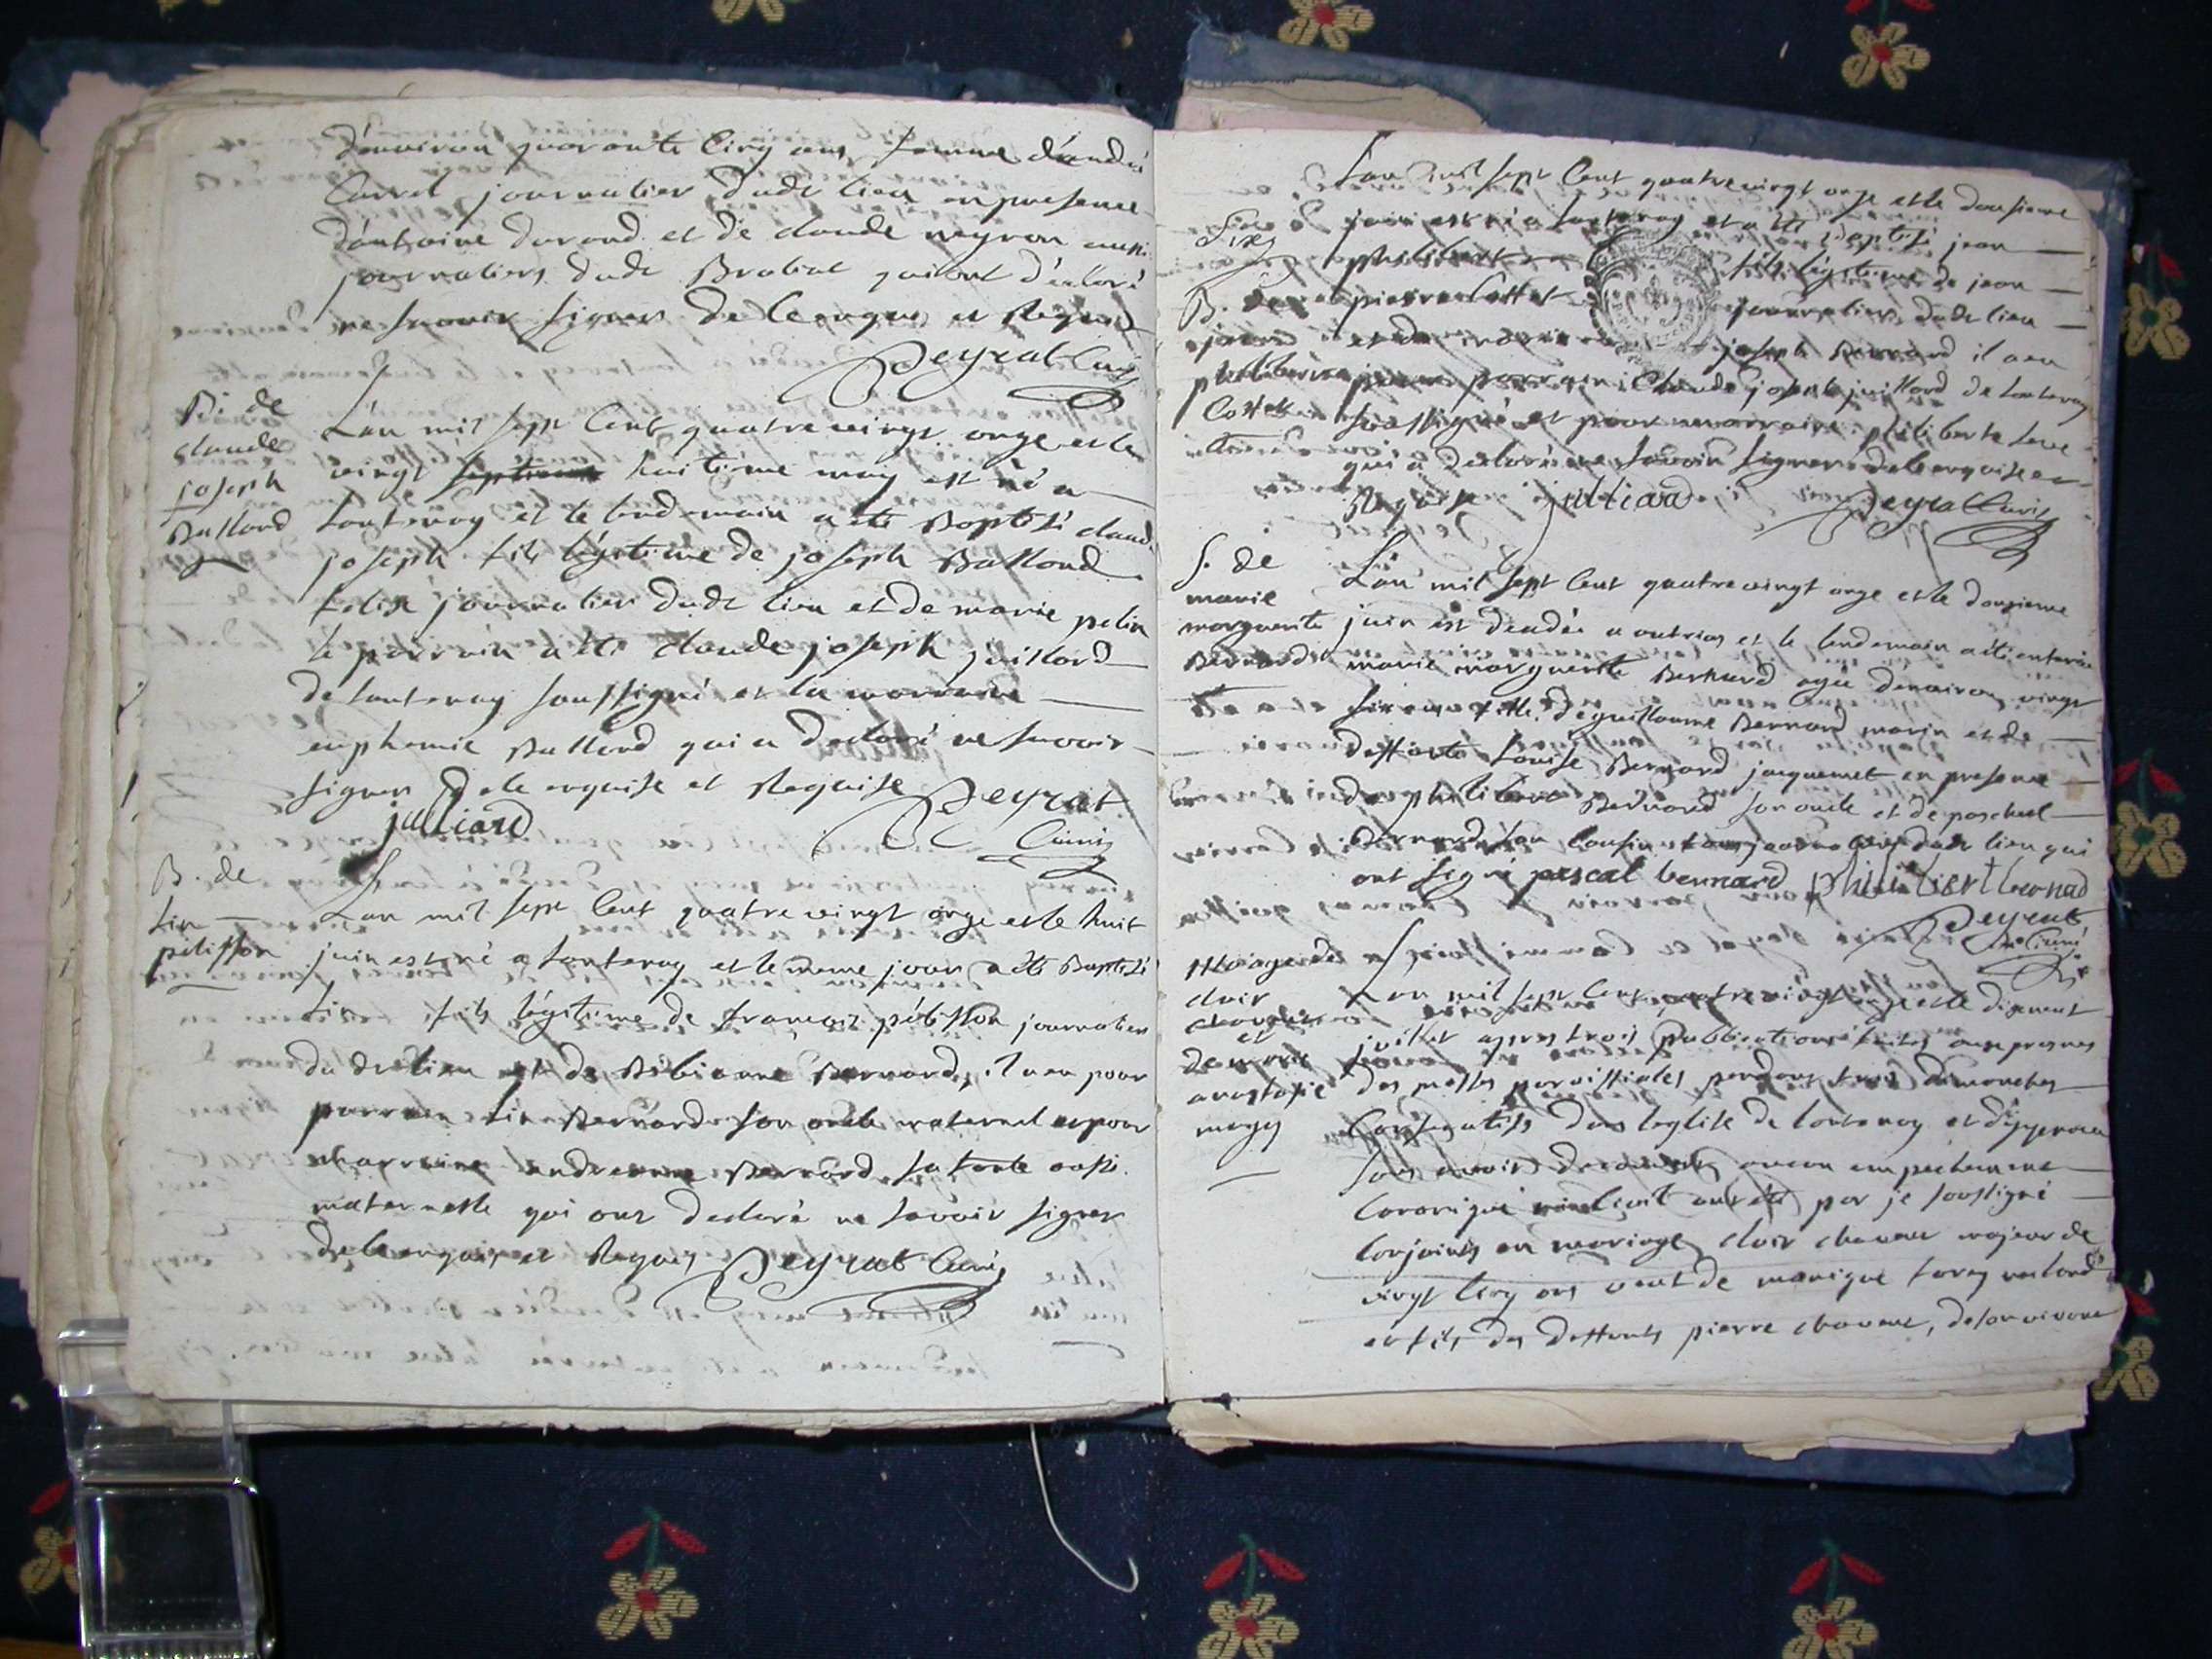 d'environ quarante cinq ans femme d'andré
Carrel journalier dudt lieu en presence
d'antoine durand et de claude neyron aussi
journaliers dudt Brabat qui ont déclaré
ne scavoir signer de ce enquis et Requis
Peyrat Curé
B. de
claude
joseph
Ballond
L'an mil sept Cent quatre vingt onze et le
vingt huitième may est né a
Lantenay et le lendemain a été Baptisé claude
joseph fils légitime de joseph Ballond
felix journalier dudt lieu et de marie pelin
le parrain a été claude joseph juillard
de lantenay soussigné et la marraine
euphemie Ballond qui a declaré ne scavoir
signer de ce enquise et Requise Peyrat
julliard Curé
B. de
Lin
pelisson
L'an mil sept Cent quatre vingt onze et le huit
juin est né a lantenay et le meme jour a été Baptisé
Lin fils légitime de françois pélisson journalier
du dt lieu et de Bibianne Bernard, il a eu pour
parrain Lin Bernard son oncle maternel et pour
marraine andreanne Bernard sa tante aussi
maternelle qui ont declaré ne savoir signer
de ce enquis et Requis Peyrat Curé
L'an mil sept Cent quatre vingt onze et le douzieme
juin est né a lantenay et a été Baptisé jean
philibert fils légitime de jean
pierre Cottet journalier dudt lieu
et de joseph Bernard il a eu
pour parrain Claude joseph juillard de lantenay
soussigné et pour marraine philiberte
qui a declaré ne savoir signer de ce enquise et
Requise julliard Peyrat Curé
Six
B. de
jean
philibert
Cottet
S. de
marie
marguerite
Bernard
L'an mil sept Cent quatre vingt onze et le douzieme
juin est decedée a outriaz et le lendemain a été enterrée
marie marguerite Bernard agée denviron vingt
six ans fille de guillaume Bernard marin et de
deffunte Louise Bernard jacquemet en presence
de philibert Bernard son oncle et de paschal
Bernard son Cousin tous journaliers dudt lieu qui
ont signé pascal bernard philibert bernad
Peyrat
Curé
Mariage de
clair
et
de marie
anastasie
L'an mil sept Cent quatre vingt onze et le dixneuf
juillet apres trois publications faites aux prosnes
des messes parroissiales pendant trois dimanches
Consecutifs dans leglise de lantenay et
sans avoir decouvert aucun empechement
Canonique ont été par je soussigné
Conjoints en mariage clair majeur de
vingt Cinq ans veuf de monique
et fils des deffunts pierre de son vivant